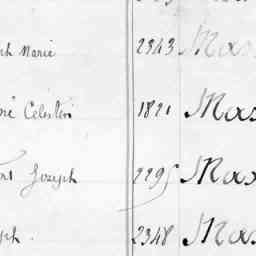 ph Marie 2343 Mas
né Célestin 1821 Mas
nt Joseph 2295 Mas
ph. 2348 Mas